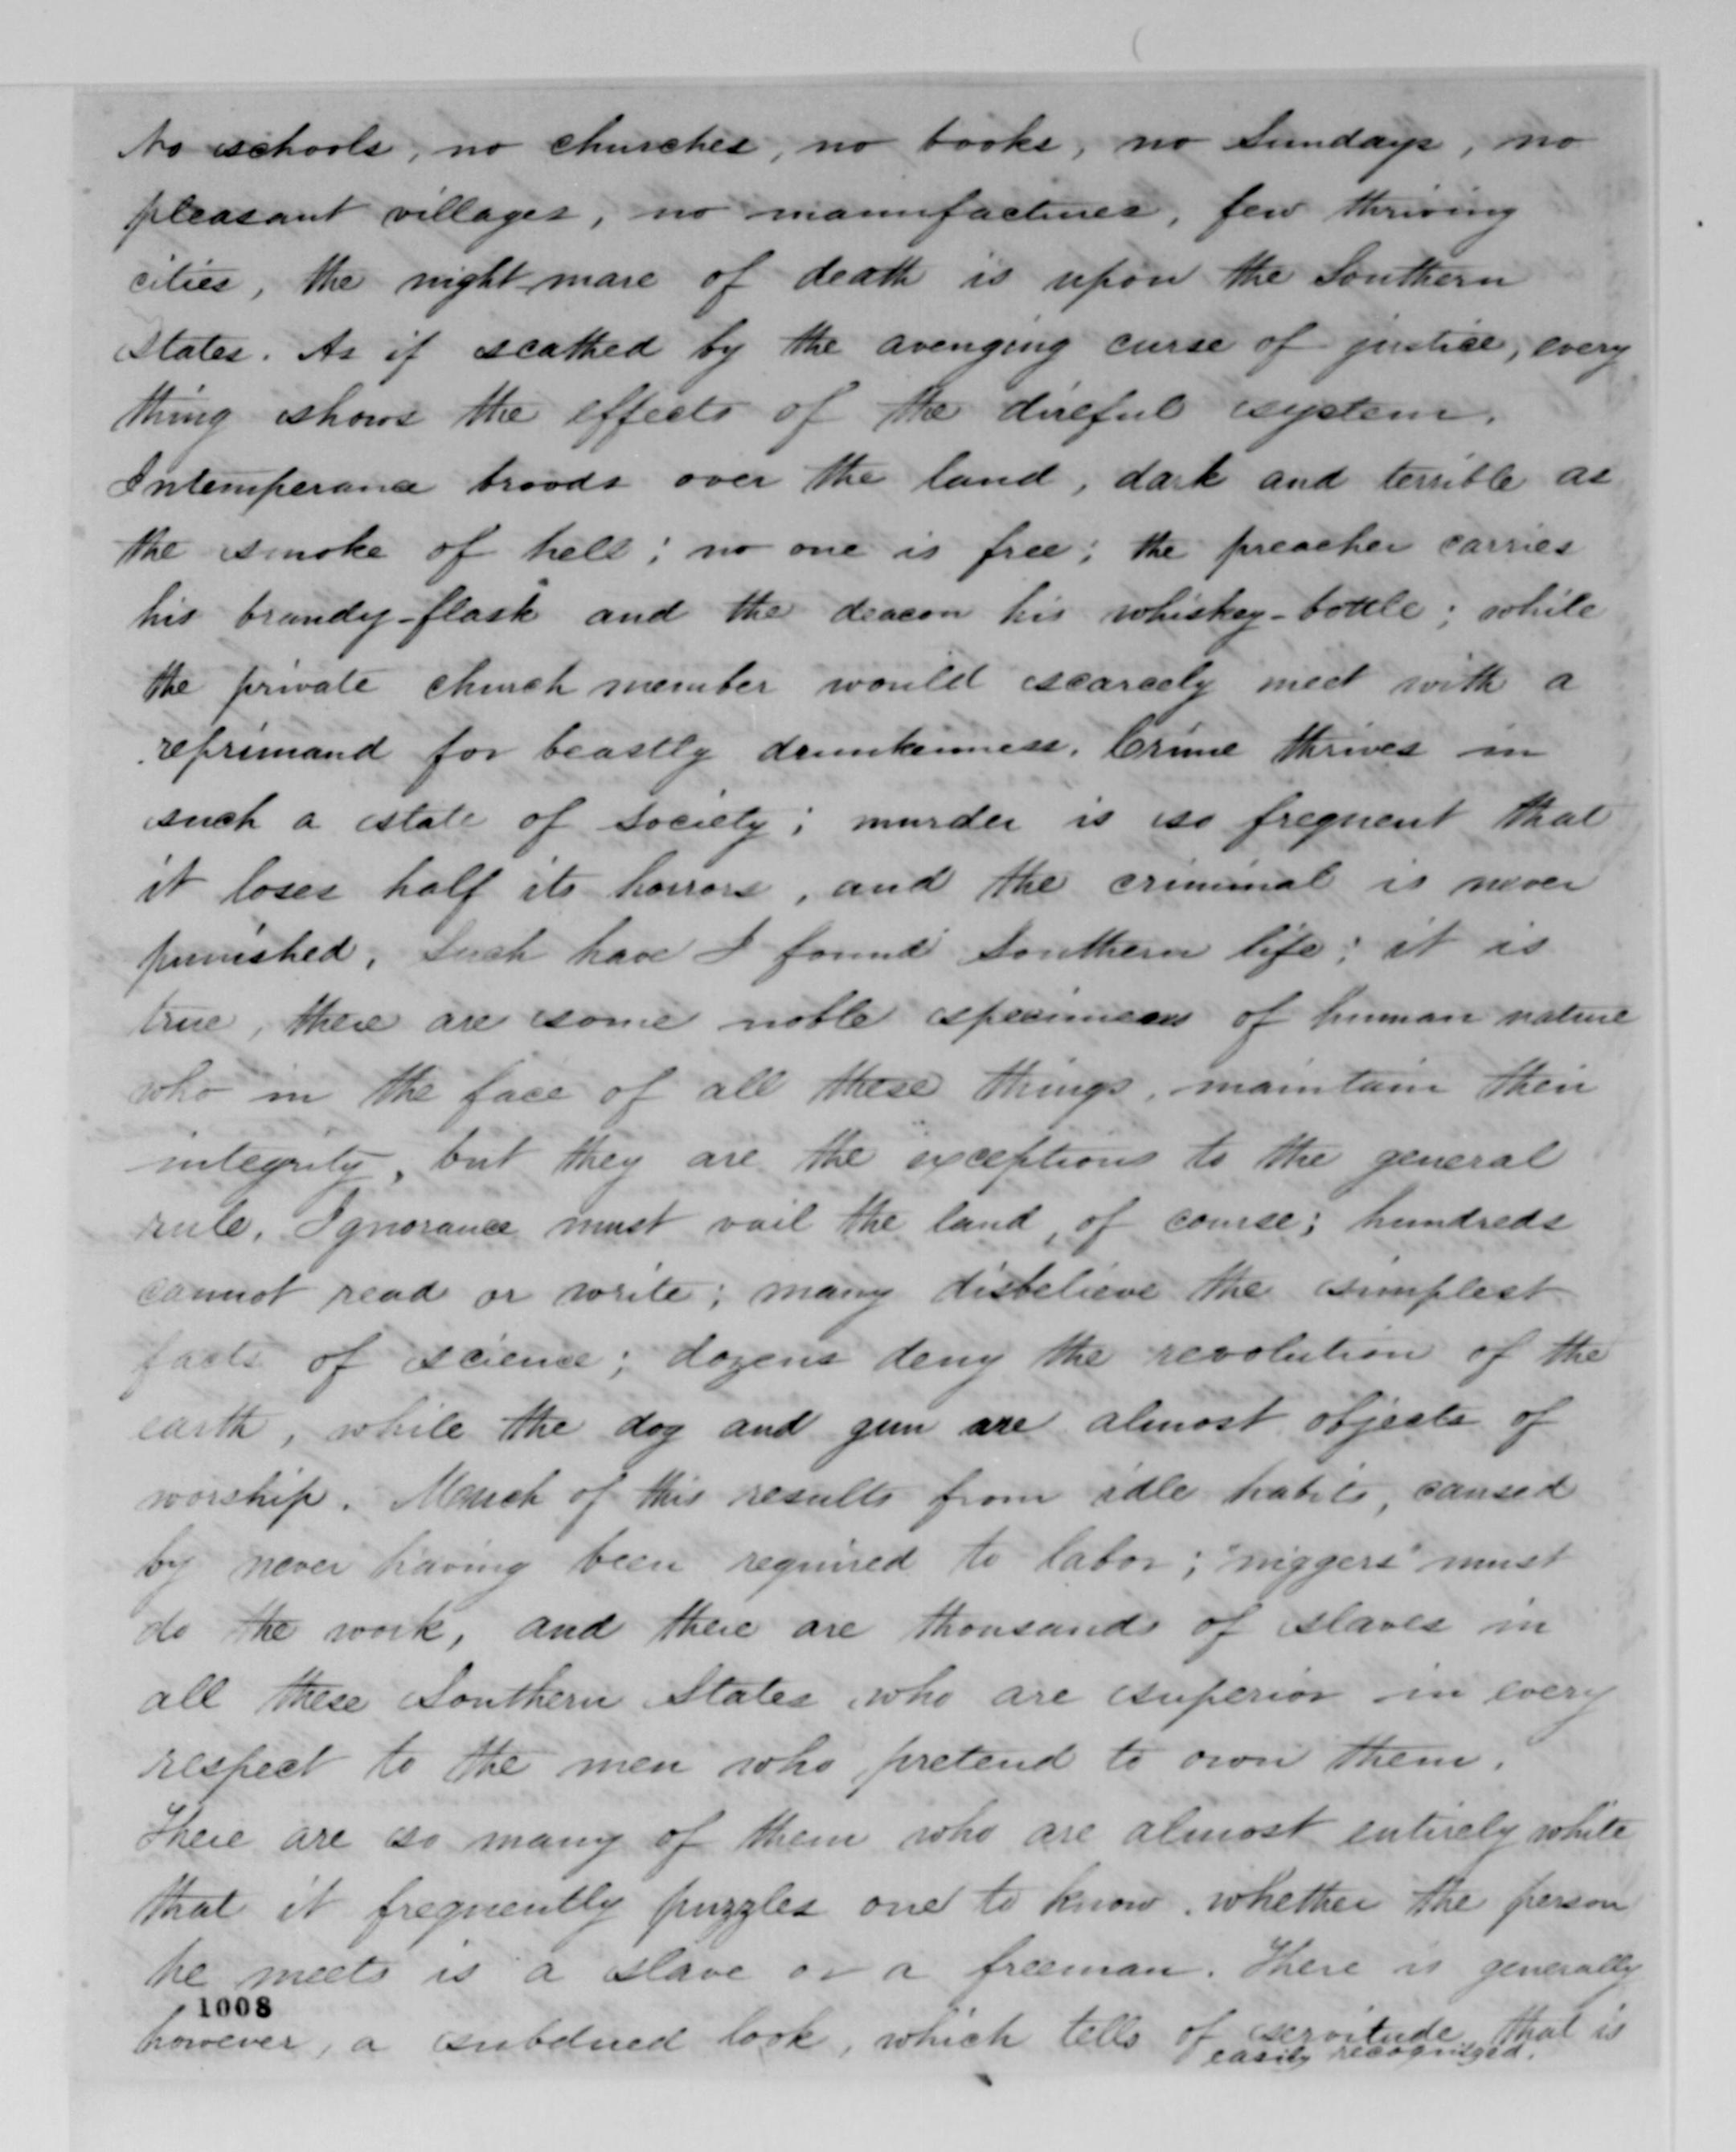 No schools, no churches, no books, no Sundays, no
pleasant villages, no manufactures, few thriving
cities, the night-mare of death is upon the Southern
States. As if scathed by the avenging curse of justice, every
thing shows the effects of the direful system.
Intemperance broods over the land, dark and terrible as
the smoke of hell; no one is free; the preacher carries
his brandy-flask and the deacon his whiskey-bottle; while
the private church member would scarcely meet with a
reprimand for beastly drunkenness. Crime thrives in
such a state of society; murder is so frequent that
it loses half its horrors, and the criminal is never
punished. Such have I found Southern life; it is
true, there are some noble specimens of human nature
who in the face of all these things, maintain their
integrity, but they are the exceptions to the general
rule. Ignorance must vail the land, of course; hundreds
cannot read or write; many disbelieve the simplest
facts of science; dozens deny the revolution of the
earth, while the dog and gun are almost objects of
worship. Much of this results from idle habits, caused
by never having been required to labor; "niggers" must
do the work, and there are thousands of slaves in
all these Southern States who are superior in every
respect to the men who pretend to own them.
There are so many of them who are almost entirely white
that it frequently puzzles one to know whether the person
he meets is a slave or a freeman. There is generally
1008
however, a subdued look, which tells of servitude that is
easily recognized.